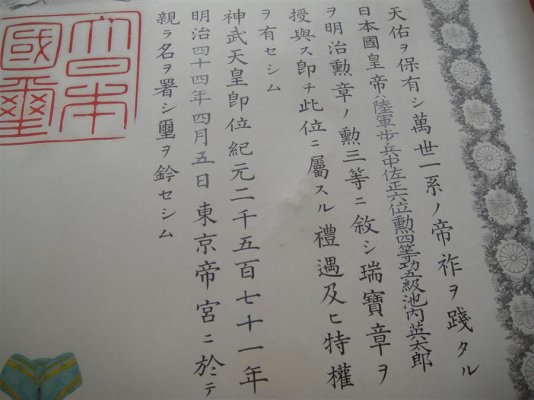 天佑ヲ保有シ萬世一系ノ帝祚ヲ踐タル
日本國皇帝陸軍歩兵中佐正六位勲四等功五級池内英太郎
ヲ明治勲章ノ勲三等ニ敍シ瑞寶章ヲ
授與ス即チ此位ニ屬スル禮遇及ヒ特權
ヲ有セシム
神武天皇即位紀元二千五百七十一年
明治四十四年四月五日東京帝宮ニ於テ
親ラ名ヲ署シ璽ヲ鈐セシム
大日本
國璽